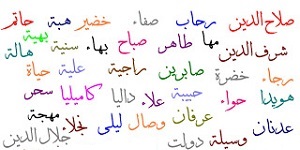 صلاح الدين رحاب صفاء خضير هبة حاتم
شرف الدين مها طاهر صباح بهاء سنية بهية هالة
رجاء خضرة صابرين راجية علية حياة
هويدا حواء حبيبة علاء داليا كاميليا سحر
عدنان وسيلة دولت عرفان وصال ليلى نجلاء مهجة جلال الدين